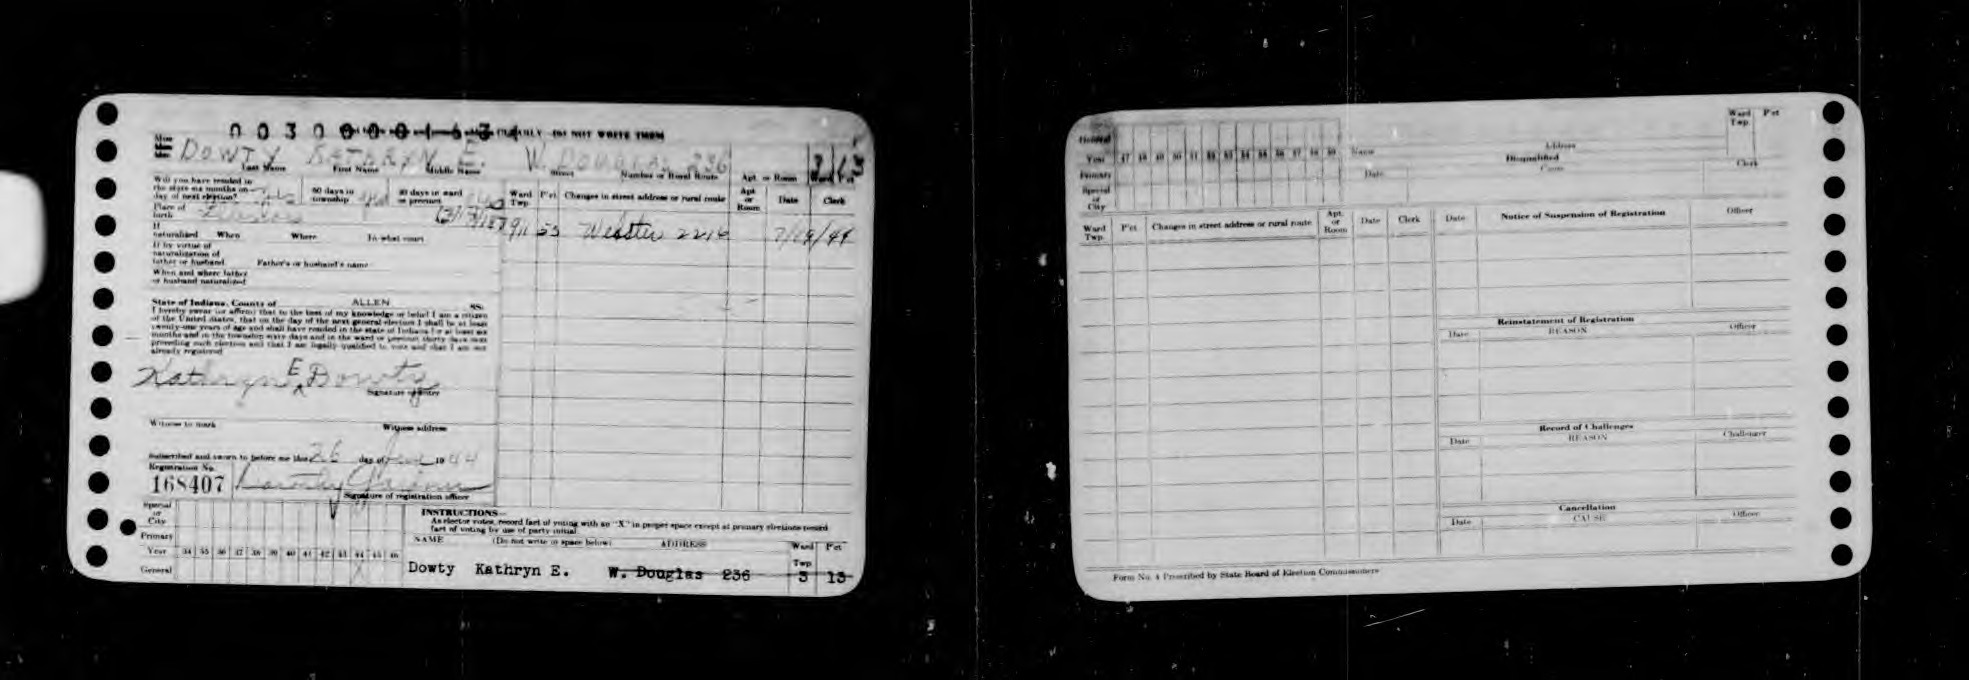 PLAINLY DO NOT WRITE THEM
DOWTY KATHRYN E. W. DOUGLAS 236 3 13
Last Name First Name Middle Name Street Number or Rural Route Apt. or Room Ward Pct
Will you have resided in
the state six months on
day of next election? yes 60 days in township yes 30 days in ward or precinct yes
Place of birth Illinois
Ward Twp. P'ct Changes in street address or rural route Apt. or Room Date Clerk
11 23 Webster 2216 7/19/44
If naturalized When Where In what court
If by virtue of
naturalization of
father or husband Father's or husband's name
When and where father
or husband naturalized
State of Indiana, County of ALLEN SS:
I hereby swear (or affirm) that to the best of my knowledge or belief I am a citizen
of the United States, that on the day of the next general election I shall be at least
twenty-one years of age and shall have resided in the state of Indiana for at least six
months and in the township sixty days and in the ward or precinct thirty days next
preceding such election and that I am legally qualified to vote and that I am not
already registered
Kathryn E Dowty
Signature of entry
Witness to mark Witness address
Subscribed and sworn to before me this 26 day of 1944
Registration No.
168407 Dorothy
Signature of registration officer
Special
or
City
Primary
Year 34 35 36 37 38 39 40 41 42 43 44 45 46
General X
INSTRUCTIONS—
As elector votes, record fact of voting with an "X" in proper space except at primary elections record
fact of voting by use of party initial
NAME (Do not write in space below) ADDRESS Ward Twp. P'ct
Dowty Kathryn E. W. Douglas 236 3 13
General
Year 47 48 49 50 51 52 53 54 55 56 57 58 59
Primary
Special
or
City
Name Address Ward Twp. P'ct
Disqualified
Date Cause Clerk
Ward Twp. P'ct Changes in street address or rural route Apt. or Room Date Clerk
Date Notice of Suspension of Registration Officer
Reinstatement of Registration
Date REASON Officer
Record of Challenges
Date REASON Challenger
Cancellation
Date CAUSE Officer
Form No. 4 Prescribed by State Board of Election Commissioners